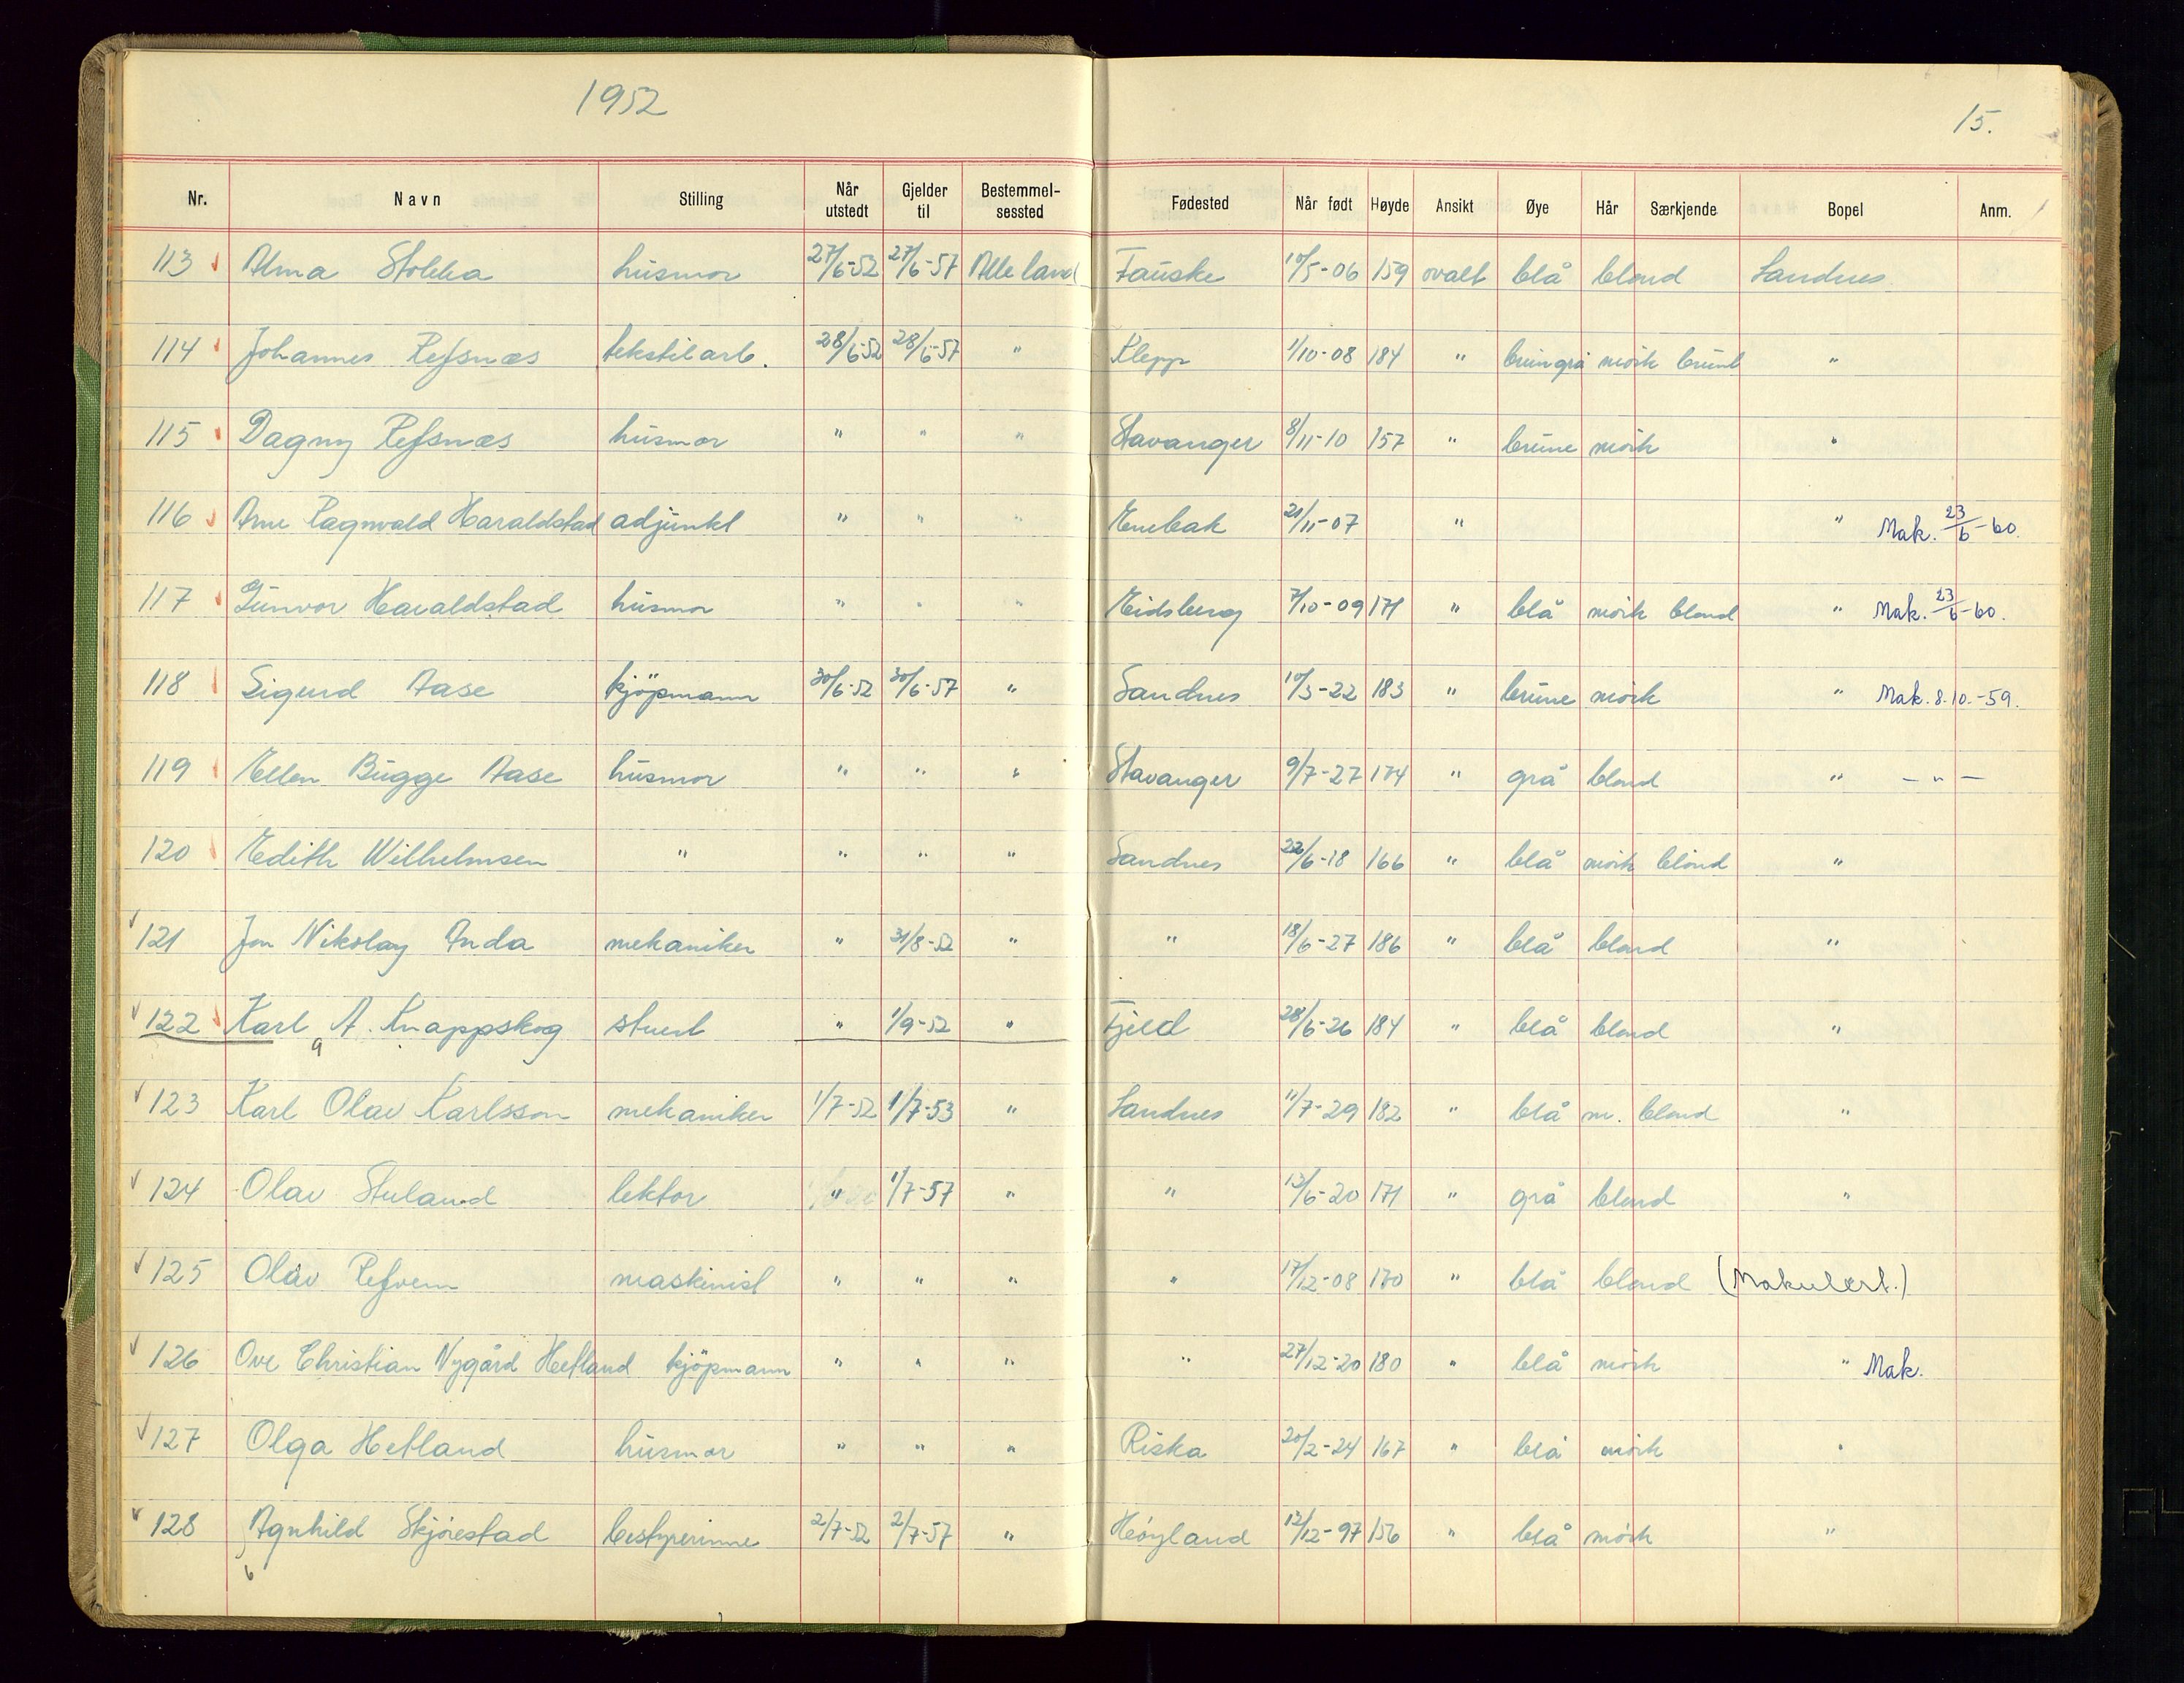 1952
15.
Nr. Navn Stilling Når utstedt Gjelder til Bestemmel-sessted Fødested Når født Høyde Ansikt Øye Hår Særkjende Bopel Anm.
113 Alma Stokka husmor 27/6-52 27/6-57 Alle land Fauske 10/5-06 159 ovalt blå blond Sandnes
114 Johannes Refsnæs tekstilarb. 28/6-52 28/6-57 " Klepp 1/10-08 184 " brungrå mörk brunt "
115 Dagny Refsnæs husmor " " " Stavanger 8/11-10 157 " brune mörk "
116 Arne Ragnvald Haraldstad adjunkt " " " Enebak 21/11-07 " " Mak. 23/6-60.
117 Gunvor Haraldstad husmor " " " Eidsberg 7/10-09 171 " blå mörk blond " Mak. 23/6-60.
118 Sigurd Aase kjöpmann 30/6-52 30/6-57 " Sandnes 10/3-22 183 " brune mörk " Mak. 8.10.-59.
119 Ellen Bugge Aase husmor " " " Stavanger 9/7-27 174 " grå blond " – " –
120 Edith Wilhelmsen " " " " Sandnes 22/6-18 166 " blå mörk blond "
121 Jon Nikolay Anda mekaniker " 31/8-52 " " 18/6-27 186 " blå blond "
122 Karl A. Knappskog stuert " 1/9-52 " Fjell 28/6-26 184 " blå blond "
123 Karl Olav Karlsson mekaniker 1/7-52 1/7-53 " Sandnes 11/7-29 182 " blå m. blond "
124 Olav Stuland lektor " 1/7-57 " " 13/6-20 171 " grå blond "
125 Olav Refvem maskinist " " " " 17/12-08 170 " blå blond (Makulert.)
126 Ove Christian Nygård Hetland kjöpmann " " " " 27/12-20 180 " blå mörk " Mak.
127 Olga Hetland husmor " " " Riska 20/2-24 167 " blå mörk "
128 Agnhild Skjörestad bestyrerinne 2/7-52 2/7-57 " Höyland 12/12-97 156 " blå mörk "